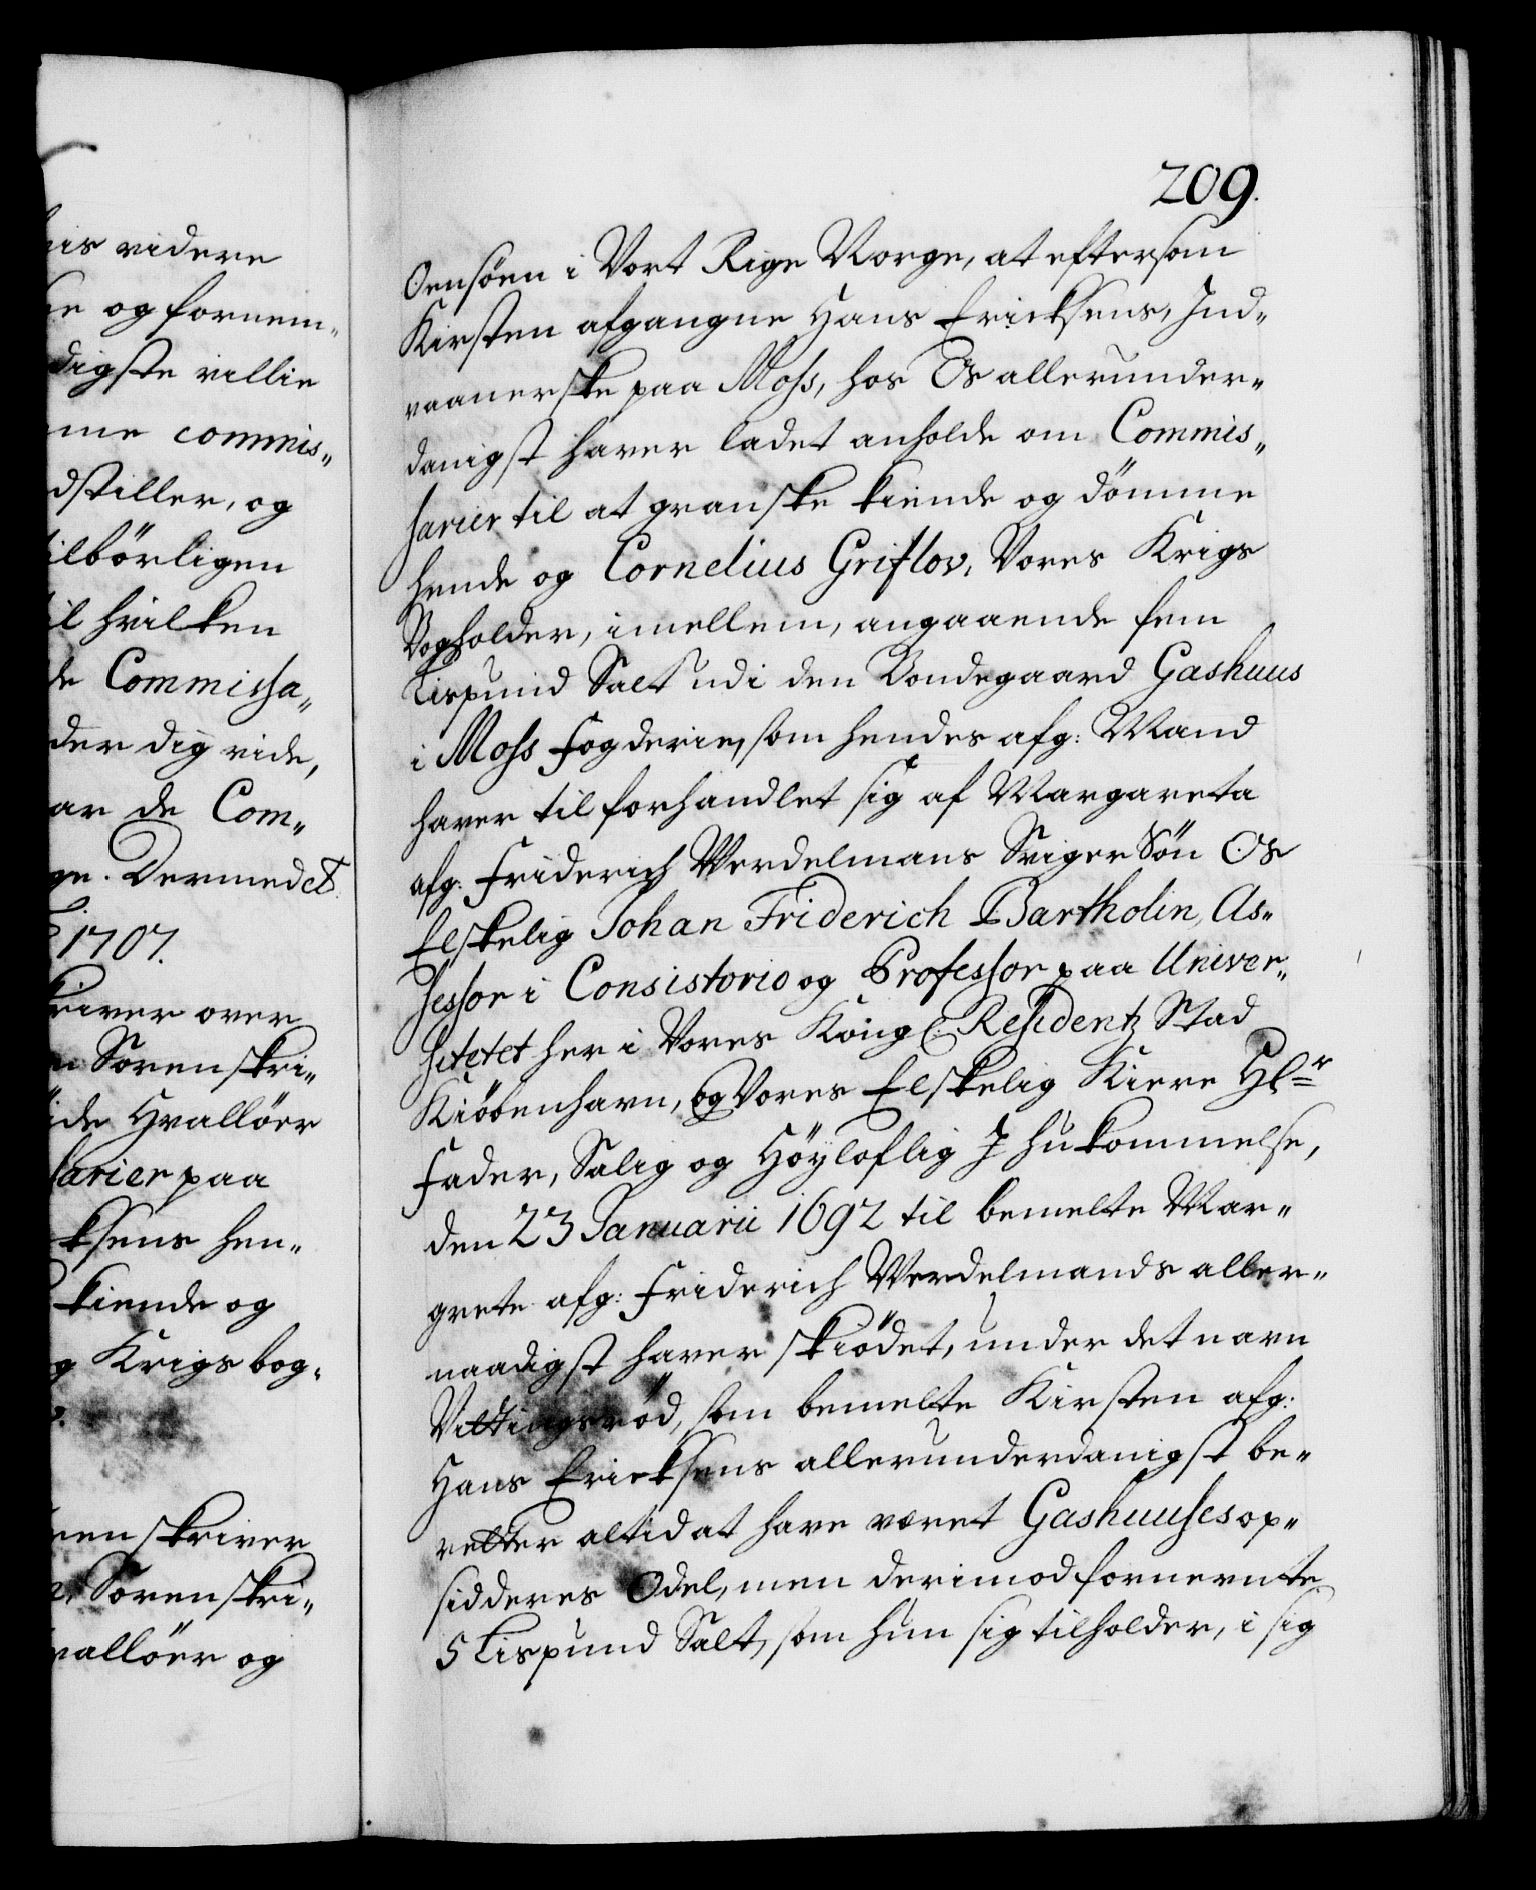 his videre
og fornem„
digste villie
me commis„
dstiller, og
tilbørligen
til hvilken
de Commissa„
der dig vide,
ar de Com„
ge. Dermed et
1707.
skriver over
Sorenskri„
de Hvalløer
sarier paa
cksens hen„
kiende og
og Krigs bog„
renskriver
Sorenskri„
valløer og
209.
Oensöen i Vort Rige Norge, at eftersom
Kirsten afgangne Hans Ericksens, Ind„
vaanerske paa Moss, hos Os allerunder„
danigst haver ladet anholde om Commis„
sarier til at granske kiende og dömme
hende og Cornelius Griflov, Vores Krigs
Bogholder, imellem, angaaende fem
Lispund Salt udi den Bondegaard Gashuus
i Moss Fogderie, som hendes afg: Mand
haver tilforhandlet sig af Margareta
afg: Friderich Werdelmans Sviger Sön Os
Elskelig Johan Friderich Bartholin, As„
sessor i Consistorio og Professor paa Univer„
sitetet her i Vores Kongl: Residentz Stad
Kiöbenhavn, og Vores Elskelig Kiere Hr
Fader, Salig og Höyloflig Ihukommelse,
den 23 Januarii 1692 til bemelte Mar„
grete afg: Friderich Werdelmands aller„
naadigst haver skiödet, under det navn
Vittingsröd, som bemelte Kirsten afg:
Hans Ericksens allerunderdanigst be„
retter altid at have været Gashuuses op„
sidderes Odel, men derimod fornevnte
5 Lispund Salt, som hun sig tilholder, i sig